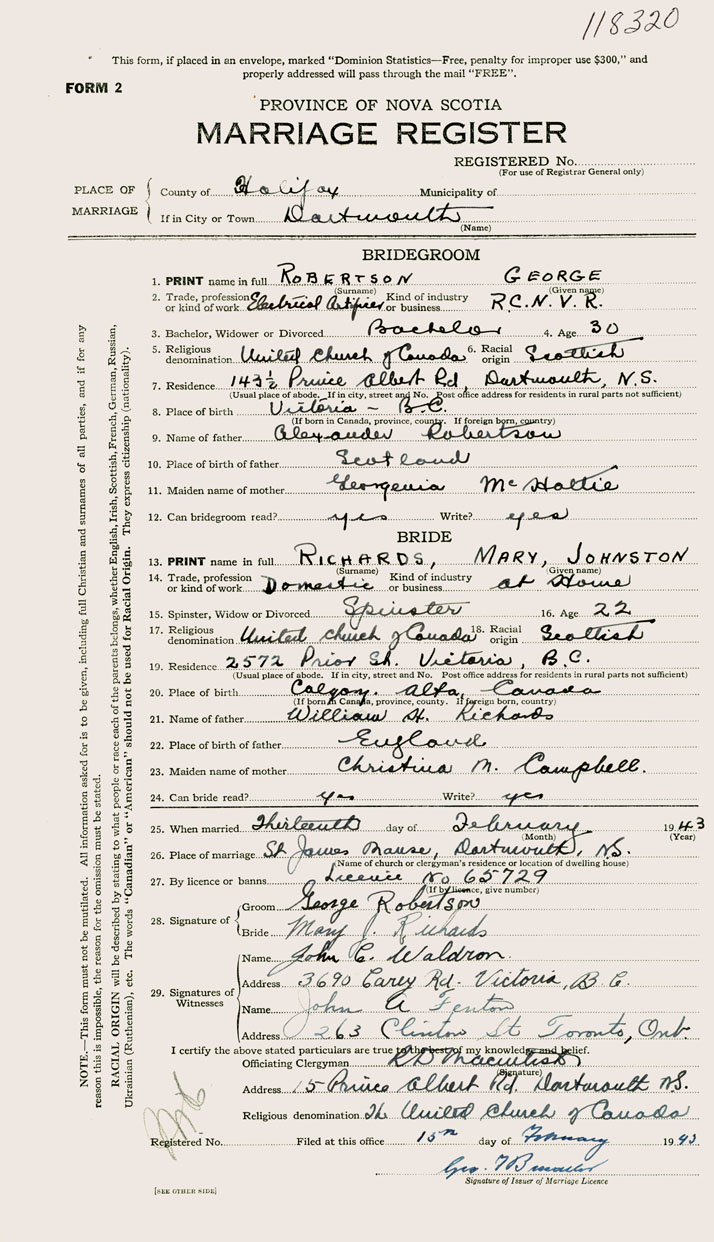 118320
This form, if placed in an envelope, marked "Dominion Statistics—Free, penalty for improper use $300," and
properly addressed will pass through the mail "FREE".
FORM 2
PROVINCE OF NOVA SCOTIA
MARRIAGE REGISTER
REGISTERED No.
(For use of Registrar General only)
PLACE OF MARRIAGE
County of Halifax Municipality of
If in City or Town Dartmouth
(Name)
BRIDEGROOM
1. PRINT name in full ROBERTSON GEORGE
(Surname) (Given name)
2. Trade, profession or kind of work Electrical Artificer Kind of industry or business R.C.N.V.R.
3. Bachelor, Widower or Divorced Bachelor 4. Age 30
5. Religious denomination United Church of Canada 6. Racial origin Scottish
7. Residence 143½ Prince Albert Rd, Dartmouth, N.S.
(Usual place of abode. If in city, street and No. Post office address for residents in rural parts not sufficient)
8. Place of birth Victoria - B.C.
(If born in Canada, province, county. If foreign born, country)
9. Name of father Alexander Robertson
10. Place of birth of father Scotland
11. Maiden name of mother Georgenia McHattie
12. Can bridegroom read? yes Write? yes
BRIDE
13. PRINT name in full RICHARDS, MARY, JOHNSTON
(Surname) (Given name)
14. Trade, profession or kind of work Domestic Kind of industry or business at Home
15. Spinster, Widow or Divorced Spinster 16. Age 22
17. Religious denomination United Church of Canada 18. Racial origin Scottish
19. Residence 2572 Prior St. Victoria, B.C.
(Usual place of abode. If in city, street and No. Post office address for residents in rural parts not sufficient)
20. Place of birth Calgary. Alta, Canada
(If born in Canada, province, county. If foreign born, country)
21. Name of father William H. Richards
22. Place of birth of father England
23. Maiden name of mother Christina M. Campbell.
24. Can bride read? yes Write? yes
25. When married Thirteenth day of February 1943
(Month) (Year)
26. Place of marriage St James Manse, Dartmouth, N.S.
(Name of church or clergyman's residence or location of dwelling house)
27. By licence or banns Licence No 65729
(If by licence, give number)
28. Signature of
Groom George Robertson
Bride Mary J. Richards
29. Signatures of Witnesses
Name John C. Waldron.
Address 3690 Carey Rd. Victoria, B.C.
Name John A Fenton
Address 263 Clinton St Toronto, Ont.
I certify the above stated particulars are true to the best of my knowledge and belief.
Officiating Clergyman
(Signature)
Address 15 Prince Albert Rd. Dartmouth N.S.
Religious denomination The United Church of Canada
Registered No. Filed at this office 15th day of February 1943
Geo.
Signature of Issuer of Marriage Licence
[SEE OTHER SIDE]
NOTE.—This form must not be mutilated. All information asked for is to be given, including full Christian and surnames of all parties, and if for any
reason this is impossible, the reason for the omission must be stated.
RACIAL ORIGIN will be described by stating to what people or race each of the parents belongs, whether English, Irish, Scottish, French, German, Russian,
Ukrainian (Ruthenian), etc. The words "Canadian" or "American" should not be used for Racial Origin. They express citizenship (nationality).